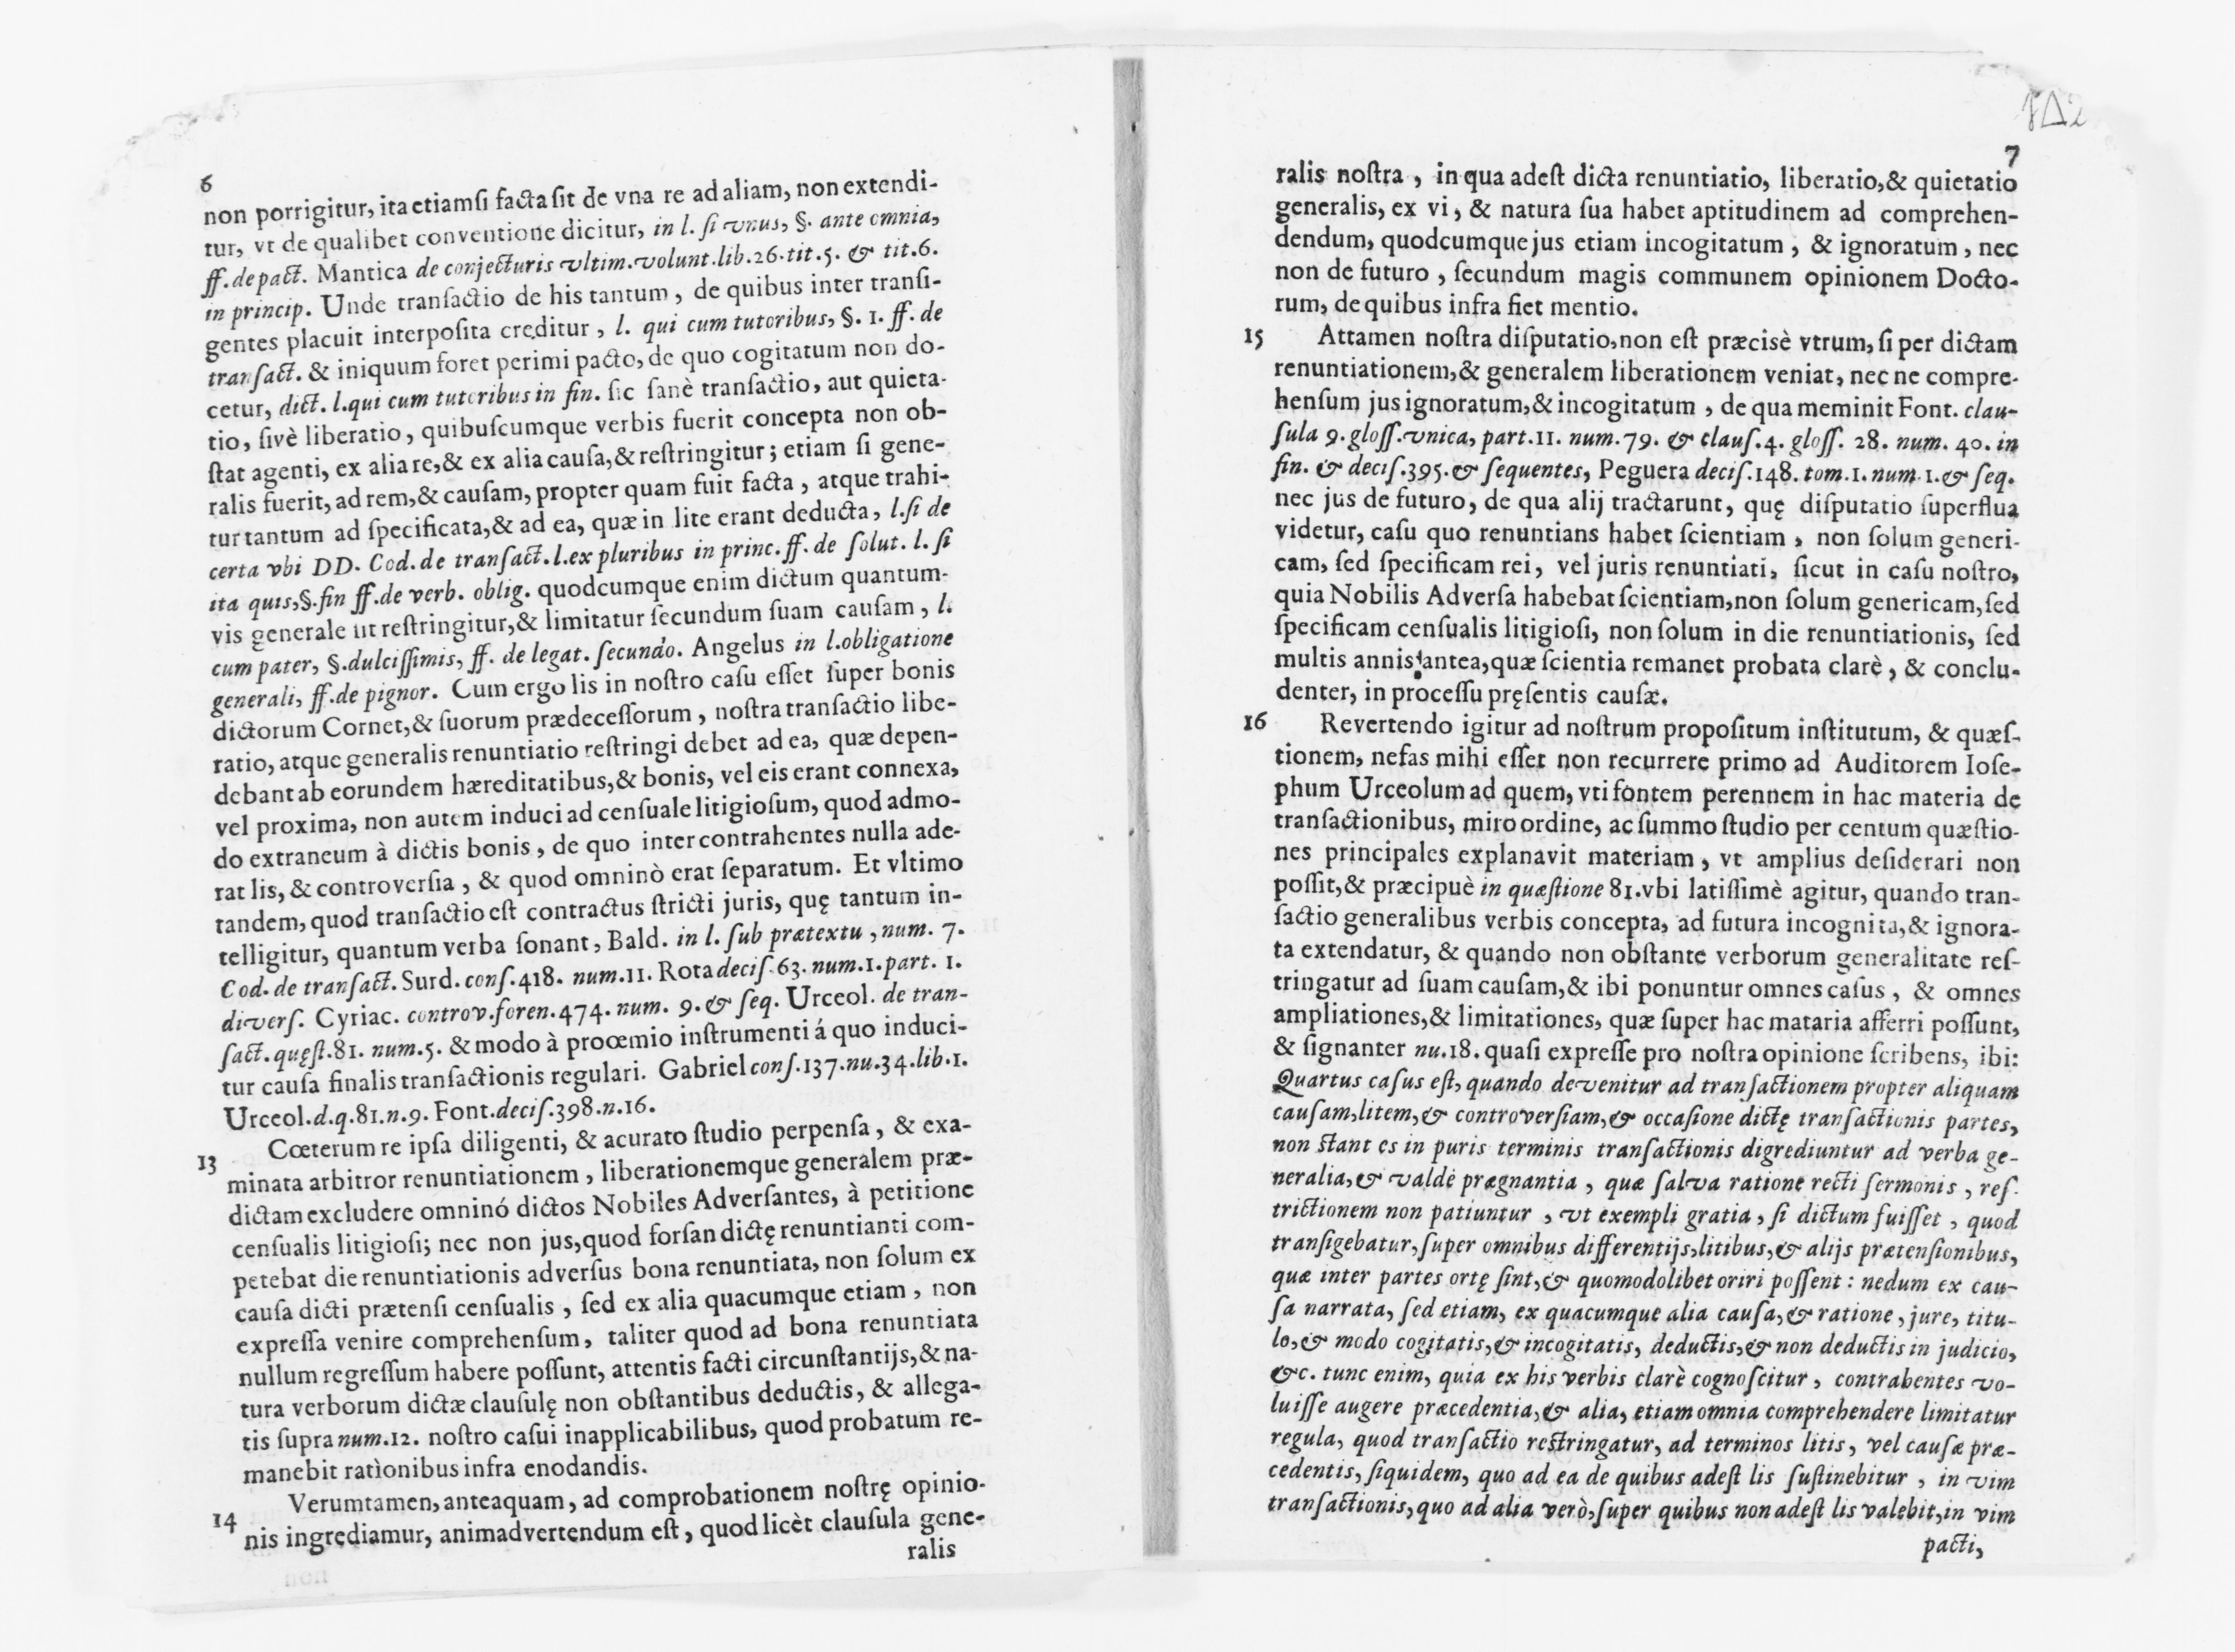 6
non porrigitur, ita etiamsi facta sit de vna re ad aliam, non extendi-
tur, vt de qualibet conventione dicitur, in l. si vnus, §. ante omnia,
ff. de pact. Mantica de conjecturis vltim. volunt. lib. 26. tit. 5. & tit. 6.
in princip. Unde transactio de his tantum, de quibus inter transi-
gentes placuit interposita creditur, l. qui cum tutoribus, §. 1. ff. de
transact. & iniquum foret perimi pacto, de quo cogitatum non do-
cetur, dict. l. qui cum tutoribus in fin. sic sanè transactio, aut quieta-
tio, sivè liberatio, quibuscumque verbis fuerit concepta non ob-
stat agenti, ex alia re, & ex alia causa, & restringitur; etiam si gene-
ralis fuerit, ad rem, & causam, propter quam fuit facta, atque trahi-
tur tantum ad specificata, & ad ea, quæ in lite erant deducta, l. si de
certa vbi DD. Cod. de transact. l. ex pluribus in princ. ff. de solut. l. si
ita quis, §. fin ff. de verb. oblig. quodcumque enim dictum quantum-
vis generale sit restringitur, & limitatur secundum suam causam, l.
cum pater, §. dulcissimis, ff. de legat. secundo. Angelus in l. obligatione
generali, ff. de pignor. Cum ergo lis in nostro casu esset super bonis
dictorum Cornet, & suorum prædecessorum, nostra transactio libe-
ratio, atque generalis renuntiatio restringi debet ad ea, quæ depen-
debant ab eorundem hæreditatibus, & bonis, vel eis erant connexa,
vel proxima, non autem induci ad censuale litigiosum, quod admo-
do extraneum à dictis bonis, de quo inter contrahentes nulla ade-
rat lis, & controversia, & quod omninò erat separatum. Et vltimo
tandem, quod transactio est contractus stricti juris, quę tantum in-
telligitur, quantum verba sonant, Bald. in l. sub prætextu, num. 7.
Cod. de transact. Surd. cons. 418. num. 11. Rota decis. 63. num. 1. part. 1.
divers. Cyriac. controv. foren. 474. num. 9. & seq. Urceol. de tran-
sact. quęst. 81. num. 5. & modo à prooemio instrumenti á quo induci-
tur causa finalis transactionis regulari. Gabriel cons. 137. nu. 34. lib. 1.
Urceol. d. q. 81. n. 9. Font. decis. 398. n. 16.
13 Cœterum re ipsa diligenti, & acurato studio perpensa, & exa-
minata arbitror renuntiationem, liberationemque generalem præ-
dictam excludere omninó dictos Nobiles Adversantes, à petitione
censualis litigiosi; nec non jus, quod forsan dictę renuntianti com-
petebat die renuntiationis adversus bona renuntiata, non solum ex
causa dicti prætensi censualis, sed ex alia quacumque etiam, non
expressa venire comprehensum, taliter quod ad bona renuntiata
nullum regressum habere possunt, attentis facti circunstantijs, & na-
tura verborum dictæ clausulę non obstantibus deductis, & allega-
tis supra num. 12. nostro casui inapplicabilibus, quod probatum re-
manebit rationibus infra enodandis.
14 Verumtamen, anteaquam, ad comprobationem nostrę opinio-
nis ingrediamur, animadvertendum est, quod licèt clausula gene-
ralis
7
ralis nostra, in qua adest dicta renuntiatio, liberatio, & quietatio
generalis, ex vi, & natura sua habet aptitudinem ad comprehen-
dendum, quodcumque jus etiam incogitatum, & ignoratum, nec
non de futuro, secundum magis communem opinionem Docto-
rum, de quibus infra fiet mentio.
15 Attamen nostra disputatio, non est præcisè vtrum, si per dictam
renuntiationem, & generalem liberationem veniat, nec ne compre-
hensum jus ignoratum, & incogitatum, de qua meminit Font. clau-
sula 9. gloss. vnica, part. 11. num. 79. & claus. 4. gloss. 28. num. 40. in
fin. & decis. 395. & sequentes, Peguera decis. 148. tom. 1. num. 1. & seq.
nec jus de futuro, de qua alij tractarunt, quę disputatio superflua
videtur, casu quo renuntians habet scientiam, non solum generi-
cam, sed specificam rei, vel juris renuntiati, sicut in casu nostro,
quia Nobilis Adversa habebat scientiam, non solum genericam, sed
specificam censualis litigiosi, non solum in die renuntiationis, sed
multis annis antea, quæ scientia remanet probata clarè, & conclu-
denter, in processu pręsentis causæ.
16 Revertendo igitur ad nostrum propositum institutum, & quæs-
tionem, nefas mihi esset non recurrere primo ad Auditorem Iose-
phum Urceolum ad quem, vti fontem perennem in hac materia de
transactionibus, miro ordine, ac summo studio per centum quæstio-
nes principales explanavit materiam, vt amplius desiderari non
possit, & præcipuè in quæstione 81. vbi latissimè agitur, quando tran-
sactio generalibus verbis concepta, ad futura incognita, & ignora-
ta extendatur, & quando non obstante verborum generalitate res-
tringatur ad suam causam, & ibi ponuntur omnes casus, & omnes
ampliationes, & limitationes, quæ super hac mataria afferri possunt,
& signanter nu. 18. quasi expresse pro nostra opinione scribens, ibi:
Quartus casus est, quando devenitur ad transactionem propter aliquam
causam, litem, & controversiam, & occasione dictę transactionis partes,
non stant es in puris terminis transactionis digrediuntur ad verba ge-
neralia, & valdè prægnantia, quæ salva ratione recti sermonis, res-
trictionem non patiuntur, vt exempli gratia, si dictum fuisset, quod
transigebatur, super omnibus differentijs, litibus, & alijs prætensionibus,
quæ inter partes ortę sint, & quomodolibet oriri possent: nedum ex cau-
sa narrata, sed etiam, ex quacumque alia causa, & ratione, jure, titu-
lo, & modo cogitatis, & incogitatis, deductis, & non deductis in judicio,
&c. tunc enim, quia ex his verbis clarè cognoscitur, contrahentes vo-
luisse augere præcedentia, & alia, etiam omnia comprehendere limitatur
regula, quod transactio restringatur, ad terminos litis, vel causæ præ-
cedentis, siquidem, quo ad ea de quibus adest lis sustinebitur, in vim
transactionis, quo ad alia verò, super quibus non adest lis valebit, in vim
pacti,